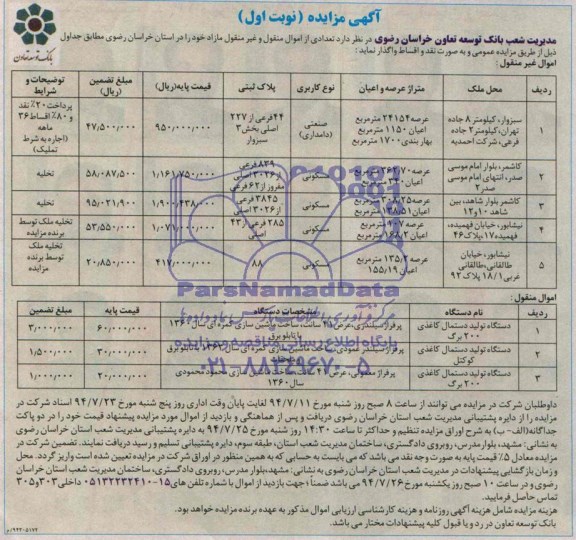 آگهی مزایده (نوبت اول)
بانک توسعه تعاون
مدیریت شعب بانک توسعه تعاون خراسان رضوی در نظر دارد تعدادی از اموال منقول و غیر منقول مازاد خود را در استان خراسان رضوی مطابق جداول
ذیل از طریق مزایده عمومی و به صورت نقد و اقساط واگذار نماید:
اموال غیر منقول:
ردیف محل ملک متراژ عرصه و اعیان نوع کاربری پلاک ثبتی قیمت پایه(ریال) مبلغ تضمین (ریال) توضیحات و شرایط
۱ سبزوار، کیلومتر ۸ جاده تهران، کیلومتر ۲ جاده فرعی، شرکت احمدیه عرصه ۲۴۱۵۴ مترمربع اعیان ۱۱۵۰ مترمربع بهاربندی ۱۷۰۰ مترمربع صنعتی (دامداری) ۴۴فرعی از ۲۲۷ اصلی بخش۳ سبزوار ۹۵۰/۰۰۰/۰۰۰ ۴۷/۵۰۰/۰۰۰ پرداخت ۲۰٪ نقد و ۸۰٪ اقساط ۳۶ ماهه (اجاره به شرط تملیک)
۲ کاشمر، بلوار امام موسی صدر، انتهای امام موسی صدر۲ عرصه ۲۶۲/۷۰ مترمربع اعیان ۳۴۰ مترمربع مسکونی ۸۳۹فرعی از ۳۰۲۶ اصلی مفروز از ۶۲ فرعی ۱/۱۶۱/۷۵۰/۰۰۰ ۵۸/۰۸۷/۵۰۰ تخلیه
۳ کاشمر بلوار شاهد، بین شاهد ۱۰و۱۲ عرصه ۲۰۸/۲۵ مترمربع اعیان ۱۳۸/۵۱ مترمربع مسکونی ۳۸۴۵فرعی از ۳۰۲۶ اصلی ۱/۹۰۰/۴۳۸/۰۰۰ ۹۵/۰۲۱/۹۰۰ تخلیه
۴ نیشابور، خیابان فهمیده، فهمیده۱۷، پلاک۴۶ عرصه ۲۰۷ مترمربع اعیان ۱۶۸/۲ مترمربع مسکونی ۲۸۵ فرعی از ۴۳ اصلی ۱/۰۷۱/۰۰۰/۰۰۰ ۵۳/۵۵۰/۰۰۰ تخلیه ملک توسط برنده مزایده
۵ نیشابور، خیابان طالقانی، طالقانی غربی ۱۸/۱ پلاک ۹۲ عرصه ۱۳۵/۲ مترمربع اعیان ۱۵۵/۱۹ مسکونی ۸۸ ۴۱۷/۰۰۰/۰۰۰ ۲۰/۸۵۰/۰۰۰ تخلیه ملک توسط برنده مزایده
ParsNamadData
۰۲۱-۸۸۳۴۹۶۷۰-۵
اموال منقول:
ردیف نام دستگاه مشخصات دستگاه قیمت پایه مبلغ تضمین
۱ دستگاه تولید دستمال کاغذی ۲۰۰ برگ پرفراژ سیلندری، عرض ۴۵ سانت، ساخت ماشین سازی عمره ای سال ۱۳۶۰ با تابلو برق ۶۰/۰۰۰/۰۰۰ ۳/۰۰۰/۰۰۰
۲ دستگاه تولید دستمال کاغذی کوکتل ۳۰/۰۰۰/۰۰۰ ۱/۵۰۰/۰۰۰
۳ دستگاه تولید دستمال کاغذی ۲۰۰ برگ پرفراژ معمولی، عرض سازی محمود محمودی سال ۱۳۶۰ ۲۰/۰۰۰/۰۰۰ ۱/۰۰۰/۰۰۰
داوطلبان شرکت در مزایده می توانند از ساعت ۸ صبح روز شنبه مورخ ۹۴/۷/۱۱ لغایت پایان وقت اداری روز پنج شنبه مورخ ۹۴/۷/۲۳ اسناد شرکت در
مزایده را از دایره پشتیبانی مدیریت شعب استان خراسان رضوی دریافت و پس از هماهنگی و بازدید از اموال مورد مزایده پیشنهاد قیمت خود را در دو پاکت
جداگانه(الف-ب) به شرح اوراق مزایده تنظیم و حداکثر تا ساعت ۱۴:۳۰ روز شنبه مورخ ۹۴/۷/۲۵ به دایره پشتیبانی مدیریت شعب استان خراسان رضوی
به نشانی: مشهد، بلوار مدرس، روبروی دادگستری، ساختمان مدیریت شعب استان، طبقه سوم، دایره پشتیبانی تسلیم و رسید دریافت نمایند. تضمین شرکت در
مزایده معادل ۵٪ قیمت پایه به صورت وجه نقد می باشد که می بایست به حسابی که به همین منظور در اوراق شرکت در مزایده تعیین شده است واریز گردد. محل
و زمان بازگشایی پیشنهادات در مدیریت شعب استان خراسان رضوی به نشانی: مشهد، بلوار مدرس، روبروی دادگستری، ساختمان مدیریت شعب استان خراسان
رضوی و در ساعت ۱۰ صبح روز یکشنبه مورخ ۹۴/۷/۲۶ می باشد ضمناً؛ جهت بازدید از اموال با شماره تلفن های ۱۵-۰۵۱۳۲۲۳۲۴۱۰ داخلی ۳۰۳ و ۳۰۵
تماس حاصل فرمایید.
هزینه مزایده شامل هزینه آگهی روزنامه و هزینه کارشناسی ارزیابی اموال مذکور به عهده برنده مزایده خواهد بود.
بانک توسعه تعاون در رد و یا قبول کلیه پیشنهادات مختار می باشد.